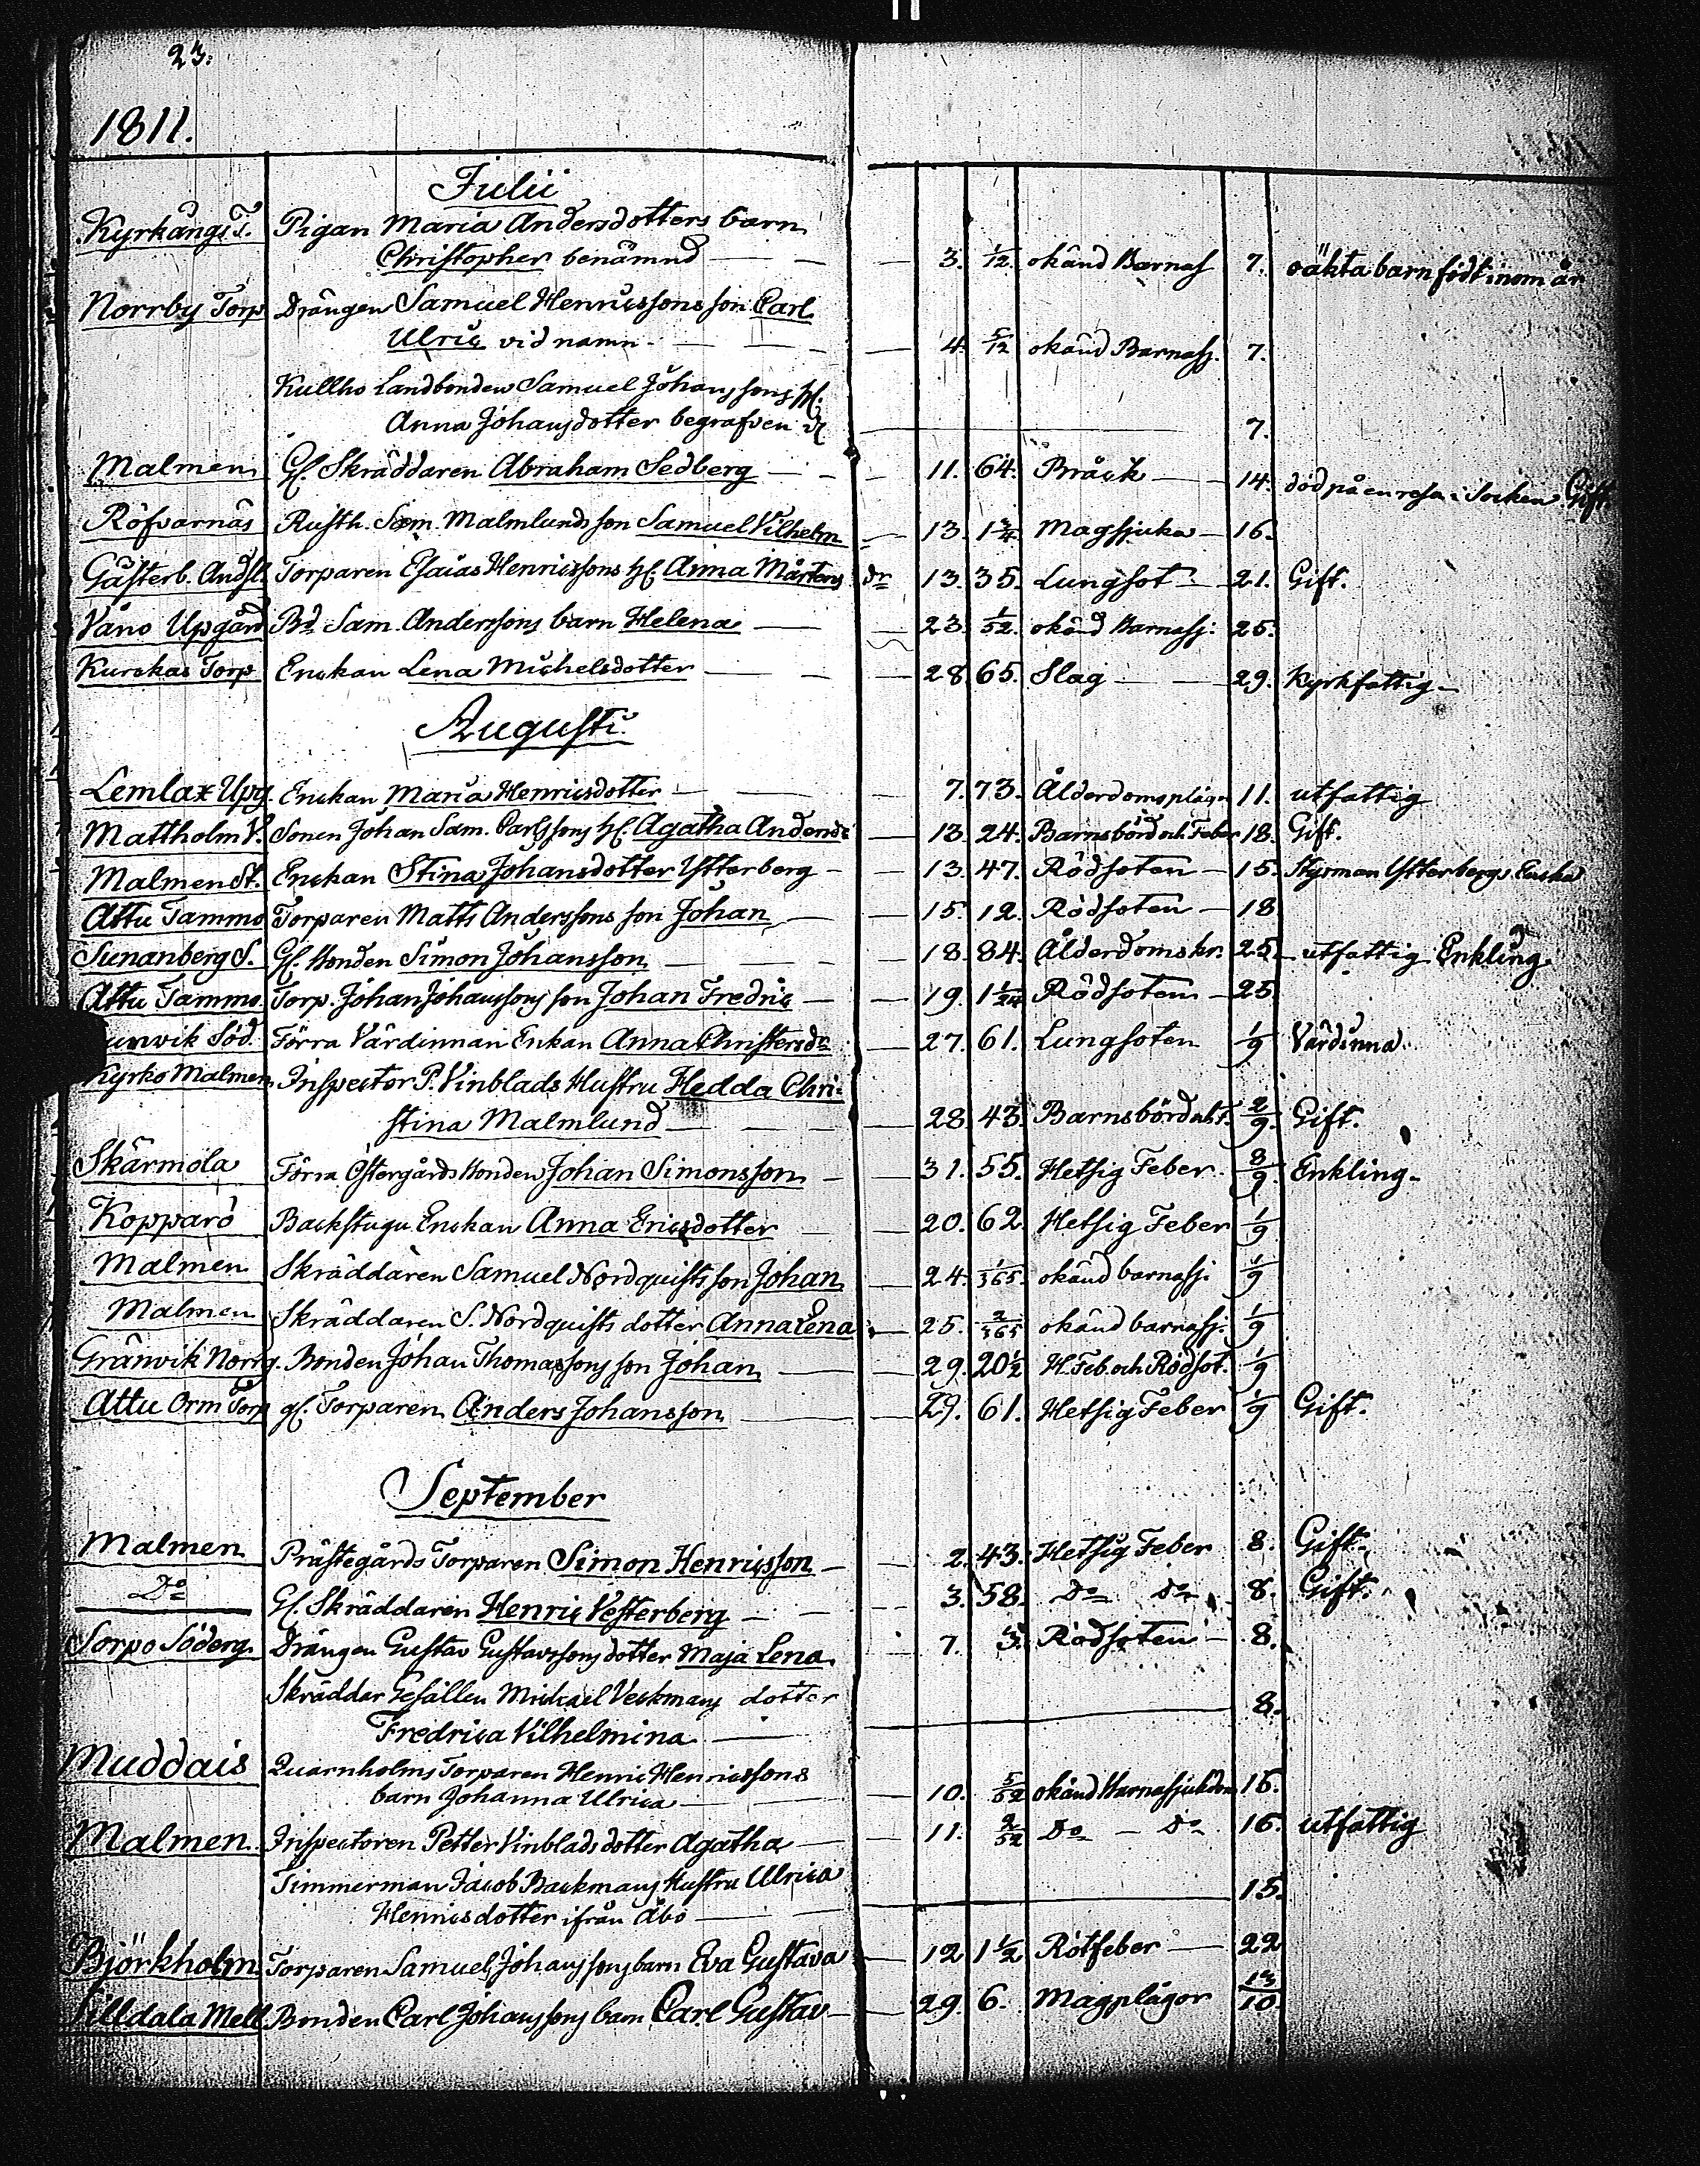 23.
1811.
Julii
Kyrkängs T. Pigan Maria Andersdotters barn
Christopher benämnd — — — 3. 1/12. okänd Barnasj. 7. oäkta barn födt inom år
Norrby Torp Drängen Samuel Henricssons son Carl
Ulric vid namn — — — 4. 5/12 okänd Barnasj. 7.
Kullho Landbonden Samuel Johanssons H.
Anna Johansdotter begrafven d. 7.
Malmen Gl. Skräddaren Abraham Sedberg — — 11. 64. Bråck — 14. död på en resa i Socken. Gift
Röfvarnäs Rusth. Sam. Malmlunds son Samuel Vilhelm — 13. 1 3/4. Magsjuka — 16.
Gästerb. Andsl. Torparen Esaias Henricssons H. Anna Mårtens dr 13. 35. Lungsot — 21. Gift.
Våno Upgård Bd. Sam. Anderssons barn Helena — — 23. 1/52. okänd Barnasj. 25.
Kurckas Torp Enckan Lena Michelsdotter — — — 28. 65. Slag — — 29. Kyrkfattig —
Augusti
Lemlax Upg. Enckan Maria Henricsdotter — — — 7. 73. Ålderdomsplågor 11. utfattig
Mattholm V. Sonen Johan Sam. Carlssons H. Agatha Andersdr — 13. 24. Barnsbörd och Feber 18. Gift.
Malmen St. Enckan Stina Johansdotter Ytterberg — — 13. 47. Rödsoten — 15. Styrman Ytterbergs Encka
Attu Tammo Torparen Matts Anderssons son Johan — — 15. 12. Rödsoten — 18
Sunanberg S. Gl. Bonden Simon Johansson — — — 18. 84. Ålderdomskr. 25. utfattig Enkling.
Attu Tammo. Torp. Johan Johanssons son Johan Fredric — — 19. 1 1/24 Rödsoten — 25
unvik Söd. Förra Värdinnan Enkan Anna Christersdr — 27. 61. Lungsoten 1/9 Värdinna.
Kyrko Malmen Inspector P. Vinblads Hustru Hedda Chri-
stina Malmlund — — — 28. 43. Barnsbörd 2/9. Gift.
Skärmola Förra Östergårds Bonden Johan Simonsson — — 31. 55. Hetsig Feber. 8/9. Enkling.
Kopparö Backstugu Enckan Anna Ericsdotter — — 20. 62. Hetsig Feber 1/9
Malmen Skräddaren Samuel Nordquists son Johan — 24. 1/365. okänd barnasj. 1/9
Malmen Skräddaren S. Nordquists dotter Anna Lena — 25. 2/365 okänd barnasj. 1/9
Gränvik Norrg. Bonden Johan Thomassons son Johan — — 29. 20 1/2 H. Feb. och Rödsot. 1/9
Attu Orm Torp gl. Torparen Anders Johansson — — 29. 61. Hetsig Feber 1/9 Gift.
September
Malmen Prästegårds Torparen Simon Henricsson — — 2. 43. Hetsig Feber 8. Gift.
Do Gl. Skräddaren Henric Vesterberg — — — 3. 58. Do Do 8. Gift.
Sorpo Söderg. Drängen Gustav Gustavssons dotter Maja Lena. — 7. 3. Rödsoten — 8.
Skräddar Gesällen Michael Veckmans dotter
Fredrica Vilhelmina — — 8.
Muddais Quarnholms Torparen Henric Henricssons
barn Johanna Ulrica — — — 10. 5/52 okänd Barnasjukdom 16.
Malmen. Inspectoren Petter Vinblads dotter Agatha — — 11. 2/52 Do — Do 16. utfattig
Timmerman Jacob Backmans Hustru Ulrica
Henricsdotter ifrån Åbo — — 15.
Björkholm Torparen Samuel Johanssons barn Eva Gustava — 12 1 1/2 Rötfeber — 22
Lilldala Mell. Bonden Carl Johanssons barn Carl Gustav — — 29. 6. Magplågor 13/10.